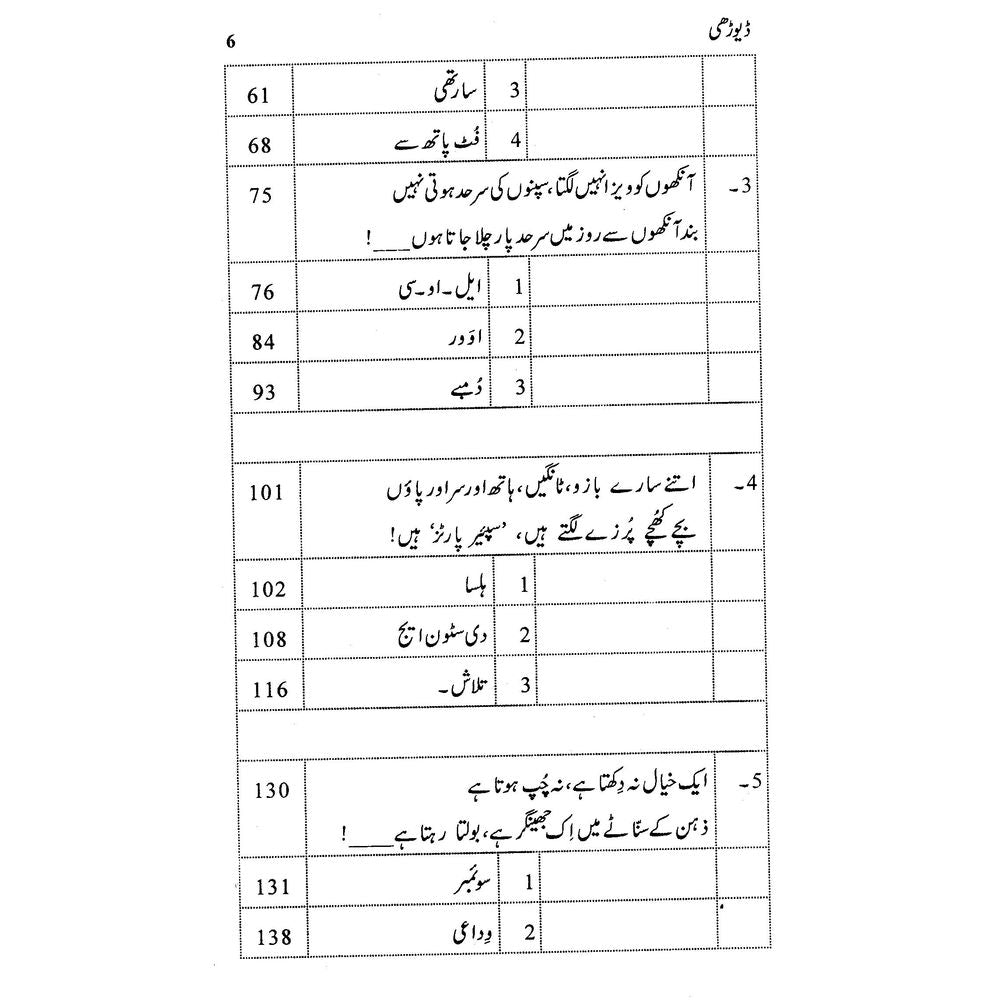 ڈیوڑھی 6
3 سارتھی 61
4 فُٹ پاتھ سے 68
3۔ آنکھوں کو ویزا نہیں لگتا، سپنوں کی سرحد ہوتی نہیں 75
بند آنکھوں سے روز میں سرحد پار چلا جاتا ہوں____!
1 ایل۔او۔سی 76
2 اوَور 84
3 دُمبے 93
4۔ اتنے سارے بازو، ٹانگیں، ہاتھ اور سر اور پاؤں 101
بچے کھُچے پُرزے لگتے ہیں، ’سپئیر پارٹز‘ ہیں!
1 ہلسا 102
2 دی سٹون ایج 108
3 تلاش۔ 116
5۔ ایک خیال نہ دِکھتا ہے، نہ چُپ ہوتا ہے 130
ذہن کے سنّاٹے میں اِک جھینگر ہے، بولتا رہتا ہے____!
1 سوئمبر 131
2 وِداعی 138